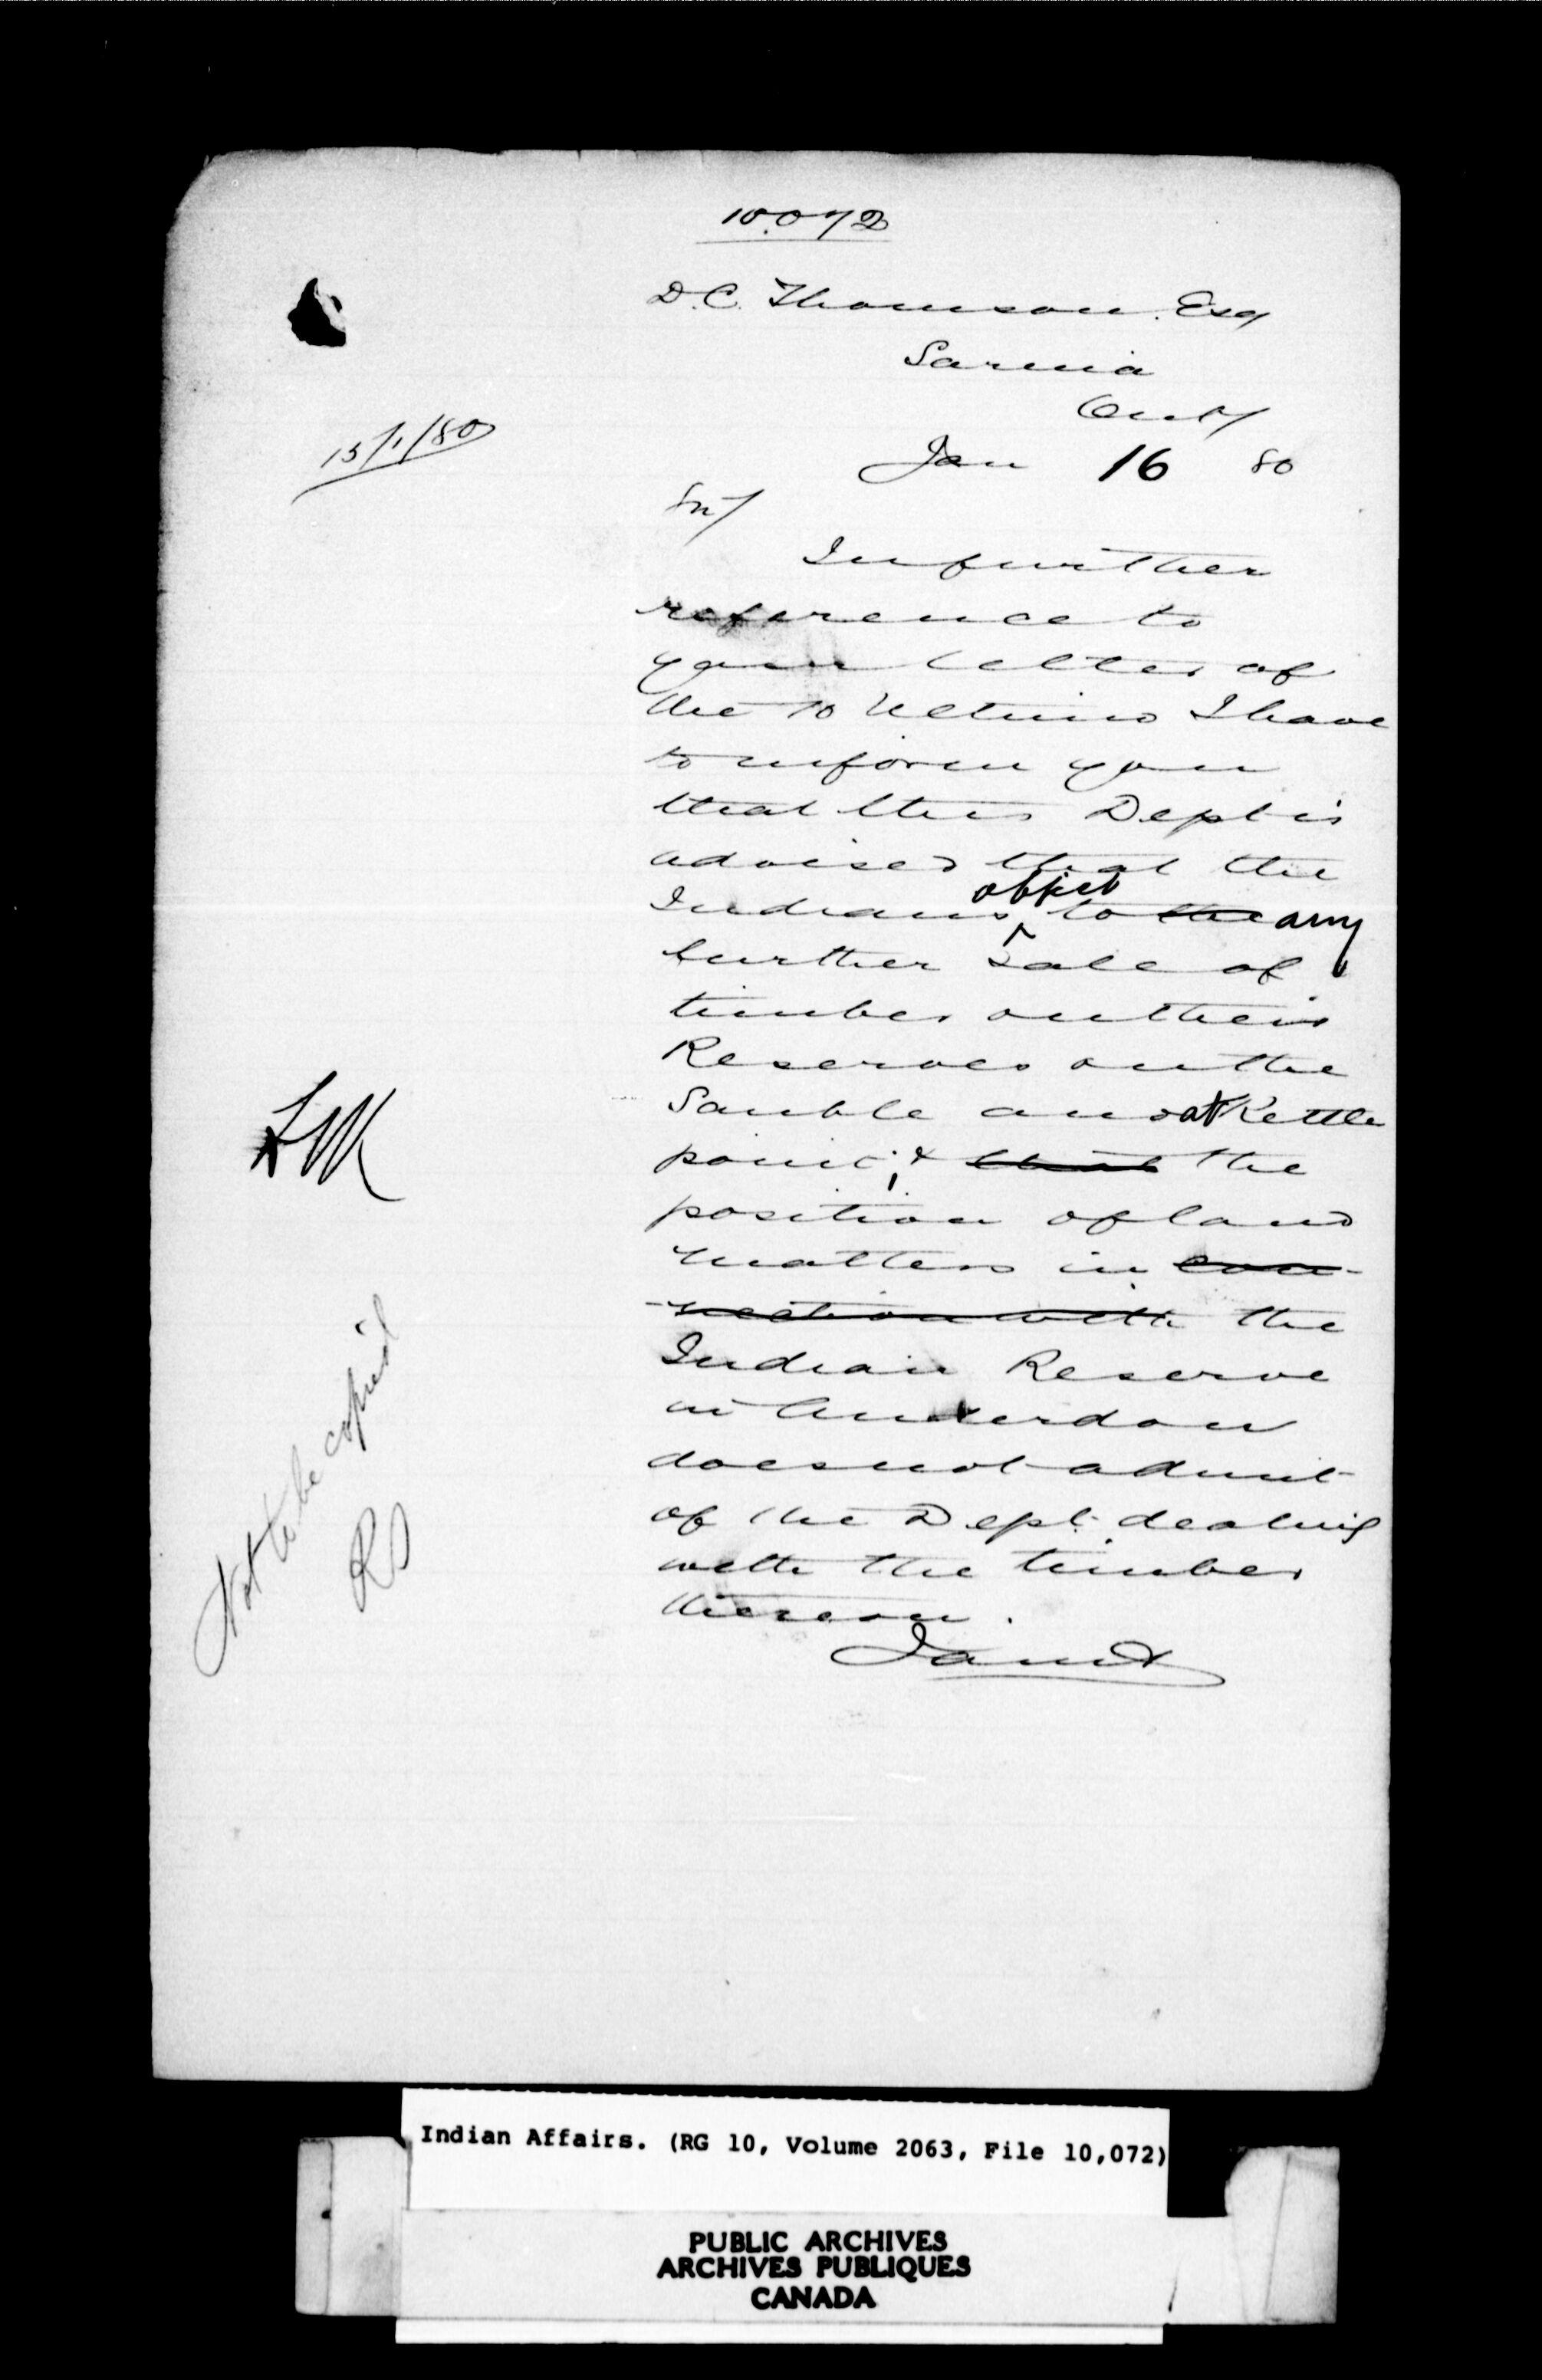 10.072
D. C. Thomson. Esq
Sarnia
Ont/
15/1/80
Jan 16 80
Sir/
In further
reference to
your letter of
the 10 Ultimo I have
to inform you
that this Dept is
advised that the
Indians object to the any
further Sale of
timber on their
Reserves on the
Sauble and at Kettle
point; & that the
position of land
matters in con-
-nection with the
Indian Reserve
in Anderdon
does not admit
of the Dept. dealing
with the timber
thereon.
Not to be copied
Indian Affairs. (RG 10, Volume 2063, File 10,072)
PUBLIC ARCHIVES
ARCHIVES PUBLIQUES
CANADA